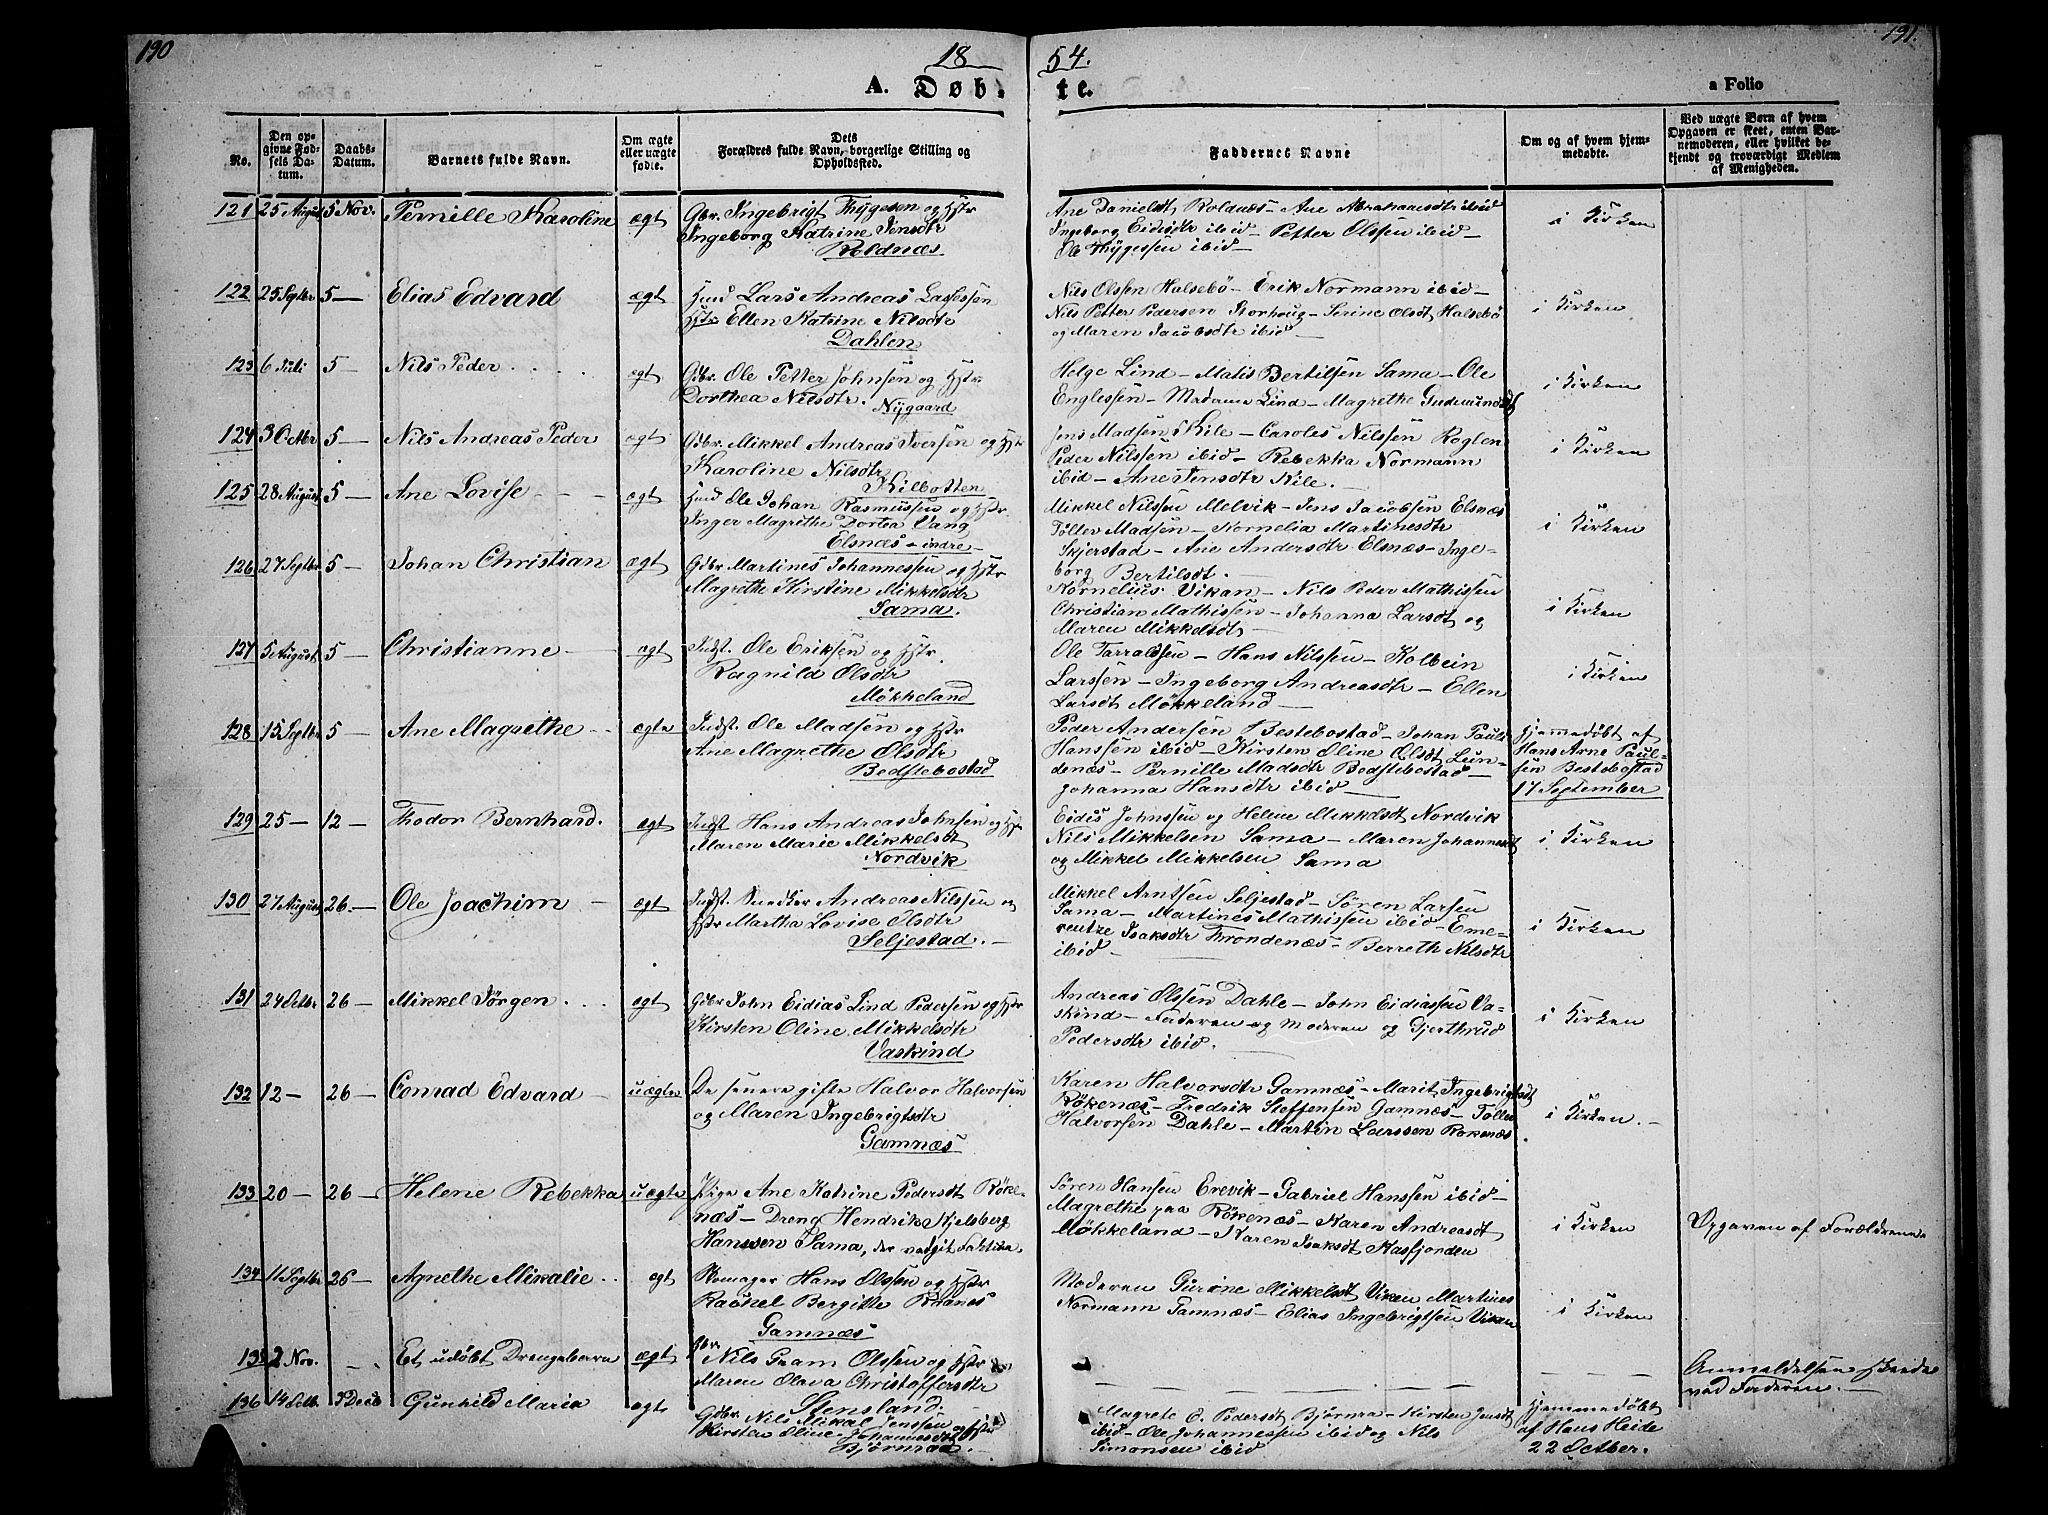 190
18
54.
191.
A. Døb.
te.
a Folio
No.
Den op-
givne Fød-
sels Da-
tum.
Daabs-
Datum.
Barnets fulde Navn.
Om ægte
eller uægte
fødte.
Dets
Forældres fulde Navn, borgerlige Stilling og
Opholdssted.
Faddernes Navne
Om og af hvem hjem-
medøbte.
Ved uægte Børn af hvem
Opgaven er skeet, enten Bar-
nemoderen, eller hvilket be-
kjendt og troværdigt Medlem
af Menigheden.
121 25 August 5 Nov. Pernille Karoline ægt
Gbr. Ingebrigt Thygesen og Hstr
Ingeborg Katrine Jensdtr
Roldnæs
Ane Danielsdt Roldnæs - Ane Abrahamsdtr ibid
Ingeborg Eidisdtr ibid - Petter Olssen ibid -
Ole Thygessen ibid -
i Kirken
122 25 Septbr 5 - Elias Edvard ægt
Hmd Lars Andreas Lassessen
Hstr Ellen Katrine Nilsdtr
Dahlen
Nils Olssen Halsebö - Erik Normann ibid -
Nils Petter Pedersen Storhoug - Serine Olsdt Halsebö
og Maren Jacobsdtr ibid -
i Kirken
123 6 Juli 5 - Nils Peder ægt
Gbr. Ole Petter Johnsen og Hstr.
Dorthea Nilsdtr. Nygaard
Helge Lind - Matis Bertilsen Sama - Ole
Englessen - Madame Lind - Magrethe Gudmundsdt
i Kirken
124 3 Octbr 5 - Nils Andreas Peder ægt
Gbr. Mikkel Andreas Iversen og Hstr
Karoline Nilsdtr
Kilbotten
Jens Madsen Kile - Caroles Nilssen Roglen
Peder Nilssen ibid - Rebekka Normann
ibid - Ane Jensdtr Kile. -
i Kirken
125 28 August 5 - Ane Lovise - - - ægt
Hmd Ole Johan Rasmussen og Hstr
Inger Magrethe Dortea Vang
Elsnæs - indre -
Mikkel Nilssen Melvik - Jens Jacobsen Elsnæs
Töller Madsen - Kornelia Martinesdtr
Skjerstad - Ane Andersdtr Elsnæs - Inge-
borg Bertilsdt. -
i Kirken
126 27 Septbr 5 - Johan Christian ægt
Gdbr Martines Johannessen og Hstr
Magrethe Kirstine Mikkelsdtr
Sama.
Kornelius Vikan - Nils Peder Mathissen
Christian Mathissen - Johanna Larsdt og
Maren Mikkelsdt -
i Kirken
127 5 August 5 - Christianne - ægt
Indst. Ole Eriksen og Hstr.
Ragnild Olsdtr
Møkkeland
Ole Tarraldsen - Hans Nilssen - Kolbein
Larssen - Ingeborg Andreasdtr - Ellen
Larsdt Møkkeland -
i Kirken
128 15 Septbr 5 - Ane Magrethe - - ægte
Indst. Ole Madsen og Hstr
Ane Magrethe Olsdtr
Bedstebostad
Peder Andersen Bestebostad - Johan Paul
Hanssen ibid - Kirsten Oline Olsdt Lun-
denæs - Pernille Madsdtr Bedstebostad -
Johanna Hansdtr ibid -
Hjemmedøbt af
Hans Arne Paul-
sen Bestebostad
17 September
129 25 - 12 - Thodor Bernhard. ægt
Indst Hans Andreas Johnsen og Hstr
Maren Marie Mikkelsdt
Nordvik
Eidis Johnssen og Helene Mikkelsdt Nordvik
Nils Mikkelsen Sama - Maren Johannesdt
og Mikkel Mikkelsen Sama
i Kirken
130 27 August 26 - Ole Joachim - ægt
Indst. Snedker Andreas Nilssen og
Hstr Martha Lovise Olsdtr
Seljestad. -
Mikkel Arntsen Seljestad - Sören Larsen
Sama - Martines Mathissen ibid - Eme-
rentze Isaksdtr Throndenæs - Berreth Nilsdtr
ibid -
i Kirken
131 24 Octbr 26 - Mikkel Jörgen ægt
Gdbr John Eidias Lind Pedersen og Hstr
Kirsten Oline Mikkelsdtr
Vaskind
Andreas Olssen Dahle - John Eidiassen Va-
skind - Faderen og Moderen og Gjerthrud
Pedersdtr ibid.
i Kirken
132 12 - 26 - Conrad Edvard - uægte
De senere gifte Halvor Halvorsen
og Maren Ingebrigtsdtr
Gamnæs
Karen Halvorsdtr Gamnæs - Marit Ingebrigtsdt
Rökenæs - Fredrik Steffensen Gamnæs - Töller
Halvorsen Dahle - Martin Larssen Rökenæs
i Kirken. -
133 20 - 26 - Helene Rebekka uægte
Pige Ane Katrine Pedersdt Röke-
næs - Dreng Hendrik Kjelsberg
Hanssen Sama,
Sören Hansen Erevik - Gabriel Hanssen ibid -
Magrethe paa Rökenæs - Karen Andreasdt
Møkkeland - Karen Isaksdt Kasfjorden
i Kirken
Opgaven af Forældrene.
134 11 Septbr 26 - Agnethe Mikalie ægt
Skomager Hans Olssen og Hstr
Rachel Bergitte Rönnes
Gamnæs
Moderen Gurine Mikkelsdt Viken Martines
Normann Gamnæs - Elias Ingebrigtsen Viken
i Kirken
135 2 Nov. - - Et udöbt Drengebarn ægt
Gbr.
Nils Gram Olssen og Hstr
Maren Olava Christoffersdtr
Stensland.
Anmeldelsen skeede
ved Faderen. -
136 14 Octb. 3 Decb Gunhild Maria ægt
Gdbr. Nils Mikal Jenssen og Hstr
Kirsten Oline Johannesdt
Bjørnraa. -
Magrete E. Pedersdt Bjørnra - Kirsten Jensdt
ibid - Ole Johannessen ibid og Nils
Simonsen ibid
Hjemmedöbt
af Hans Heide
22 Octber.